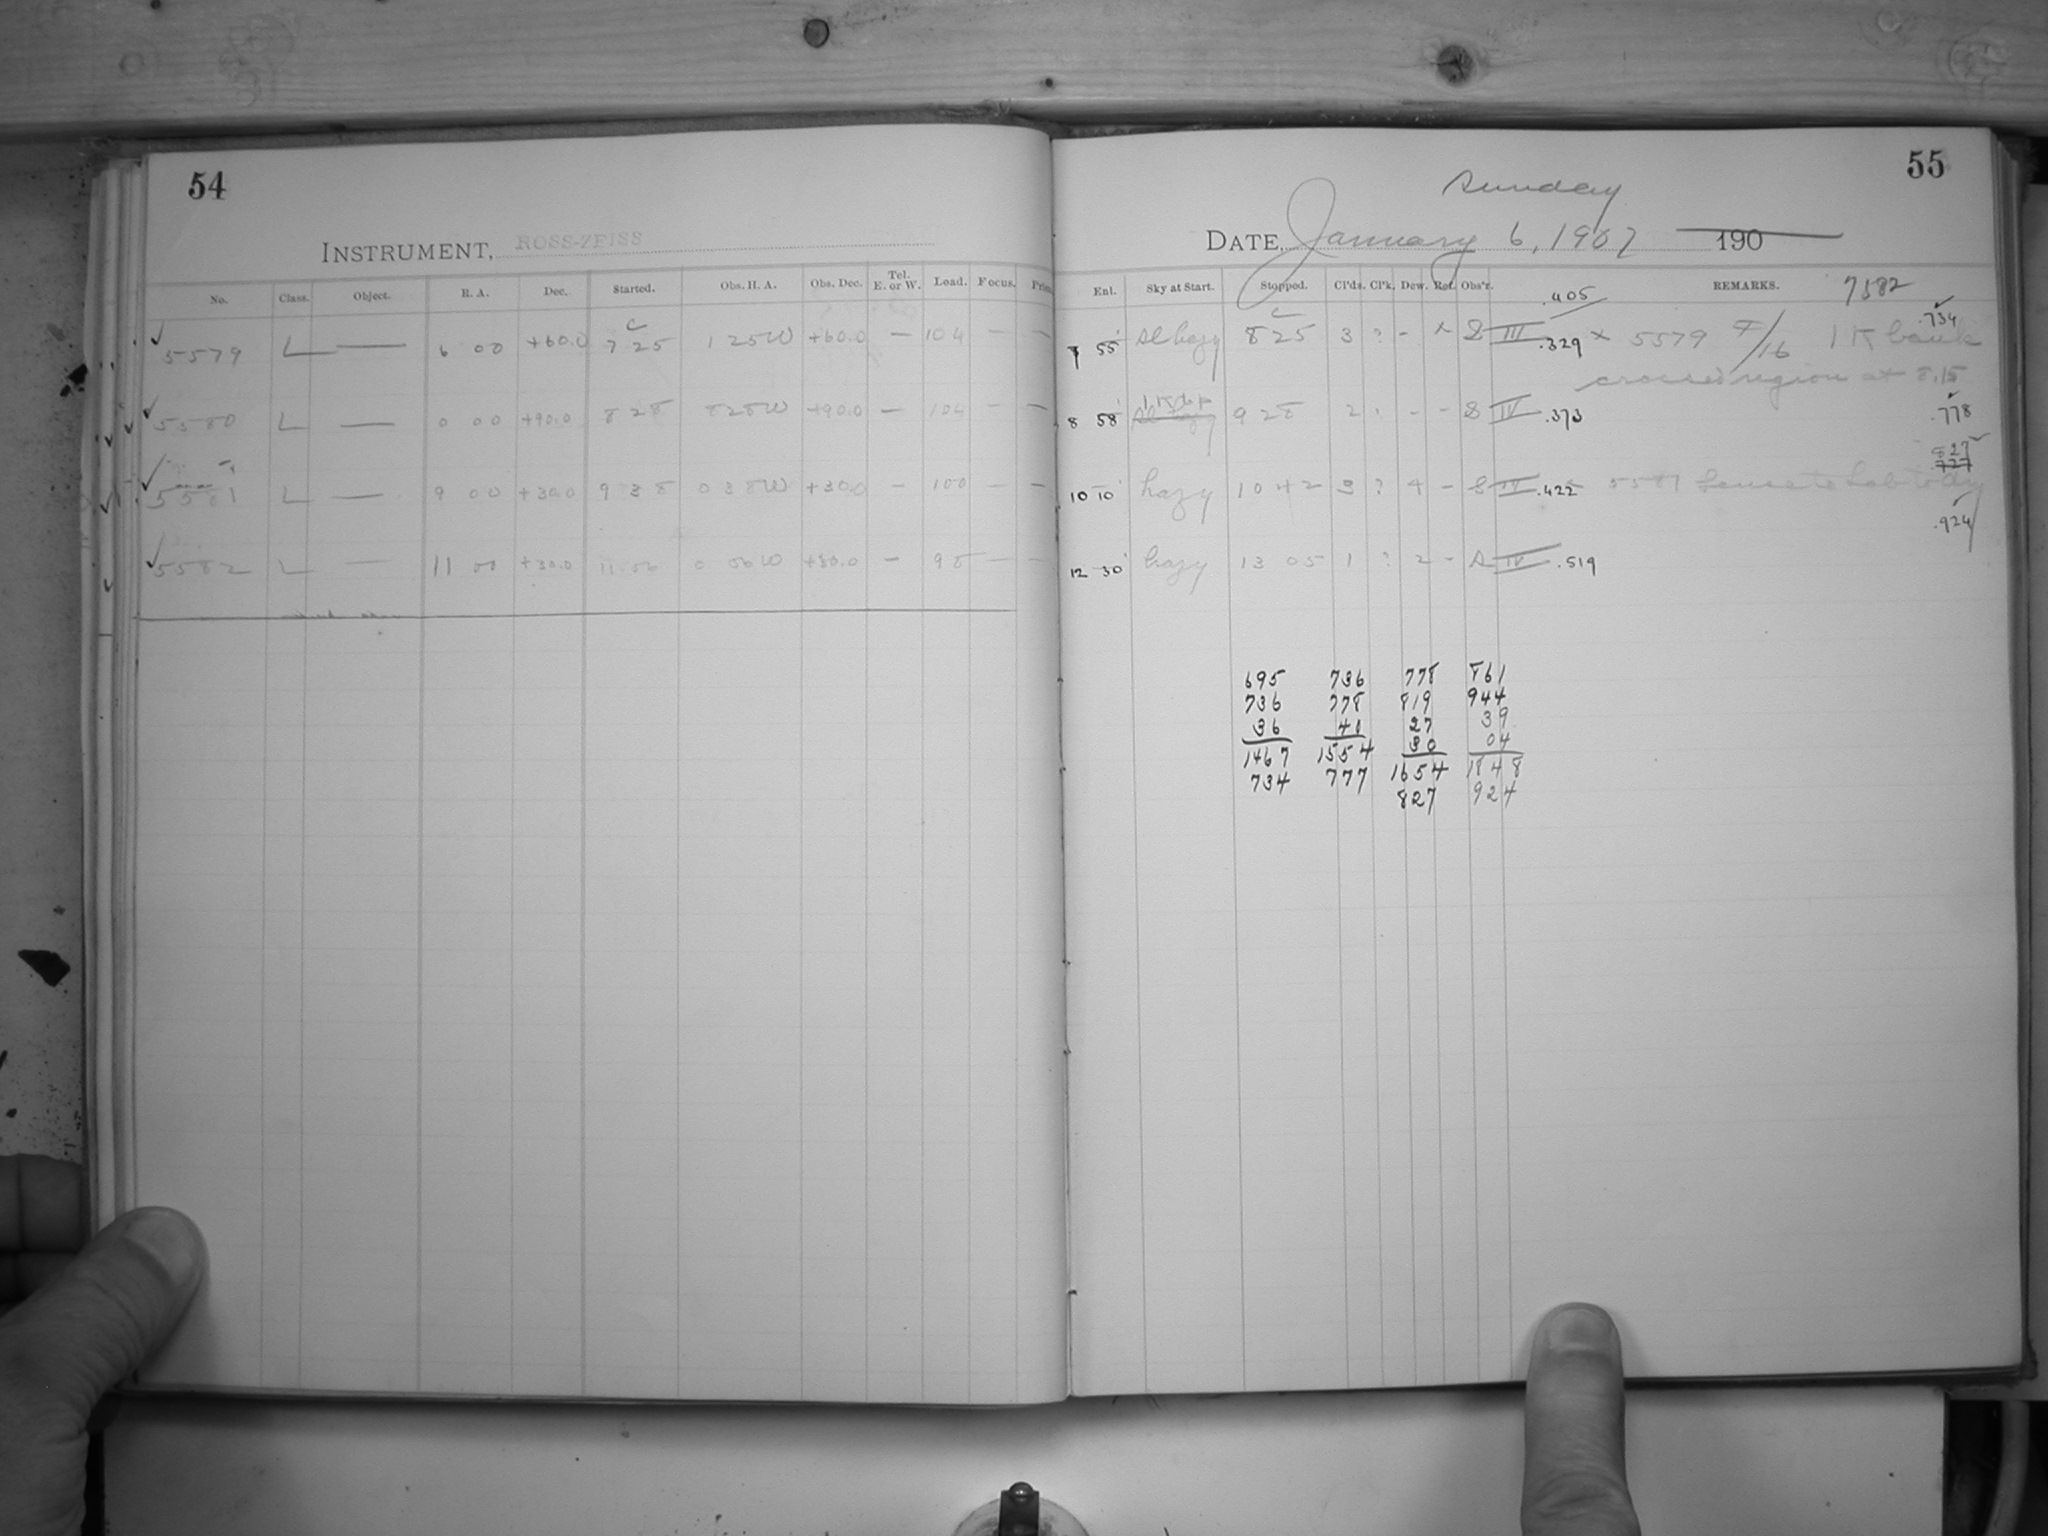 54
INSTRUMENT, ROSS-ZEISS
No. Class. Object. R. A. Dec. Started. Obs. H. A. Obs. Dec. Tel. E. or W. Load. Focus.
5579 L — 6 00 +60.0 7 25 1 25W +60.0 — 104 — —
5580 L — 0 00 +90.0 8 28 8 28W +90.0 — 104 — —
5581 L — 9 00 +30.0 9 38 0 38W +30.0 — 100 — —
5582 L — 11 00 +30.0 11 06 0 06W +30.0 — 95 — —
55
Sunday
DATE, January 6, 1907 190
Ent. Sky at Start. Stopped. Cl'ds. Cl'k. Dew. Ref. Obs'r. REMARKS. 7582
.405
.734
7 55 Sl hazy 8 25 3 ? - S III .329 x 5579 F/16 1 K bank
crossed region at 8.15
8 58 9 28 2 : - - S IV .373 .778
827
727
10 10 hazy 10 42 3 ? 4 - S IV .422 5581
.924
12 30 hazy 13 05 1 ? 2 - S IV .519
695 736 778 861
736 778 819 944
36 40 27 39
30 04
1467 1554 1654 1848
734 777 827 924